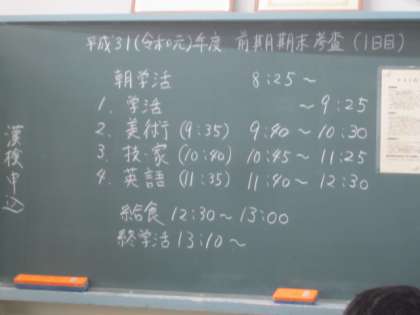 平成31(令和元)年度 前期期末考査(1日目)
朝学活 8:25~
1. 学活 ~9:25
2. 美術 (9:35) 9:40~10:30
3. 技・家 (10:40) 10:45~11:25
4. 英語 (11:35) 11:40~12:30
給食 12:30~13:00
終学活 13:10~
漢検申込